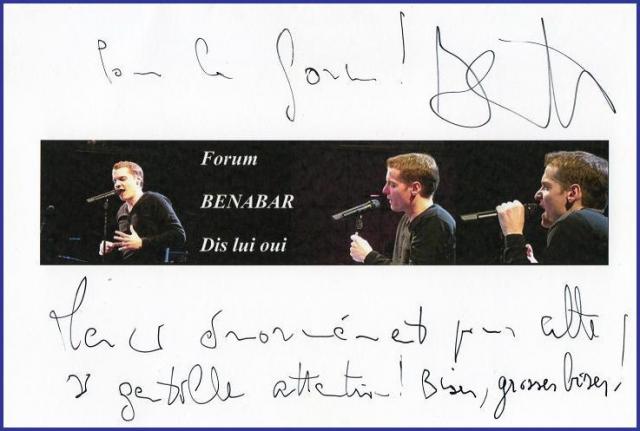 Pour le forum !
Forum
BENABAR
Dis lui oui
Merci énormément pour cette
si gentille attention ! Bises, grosses bises !